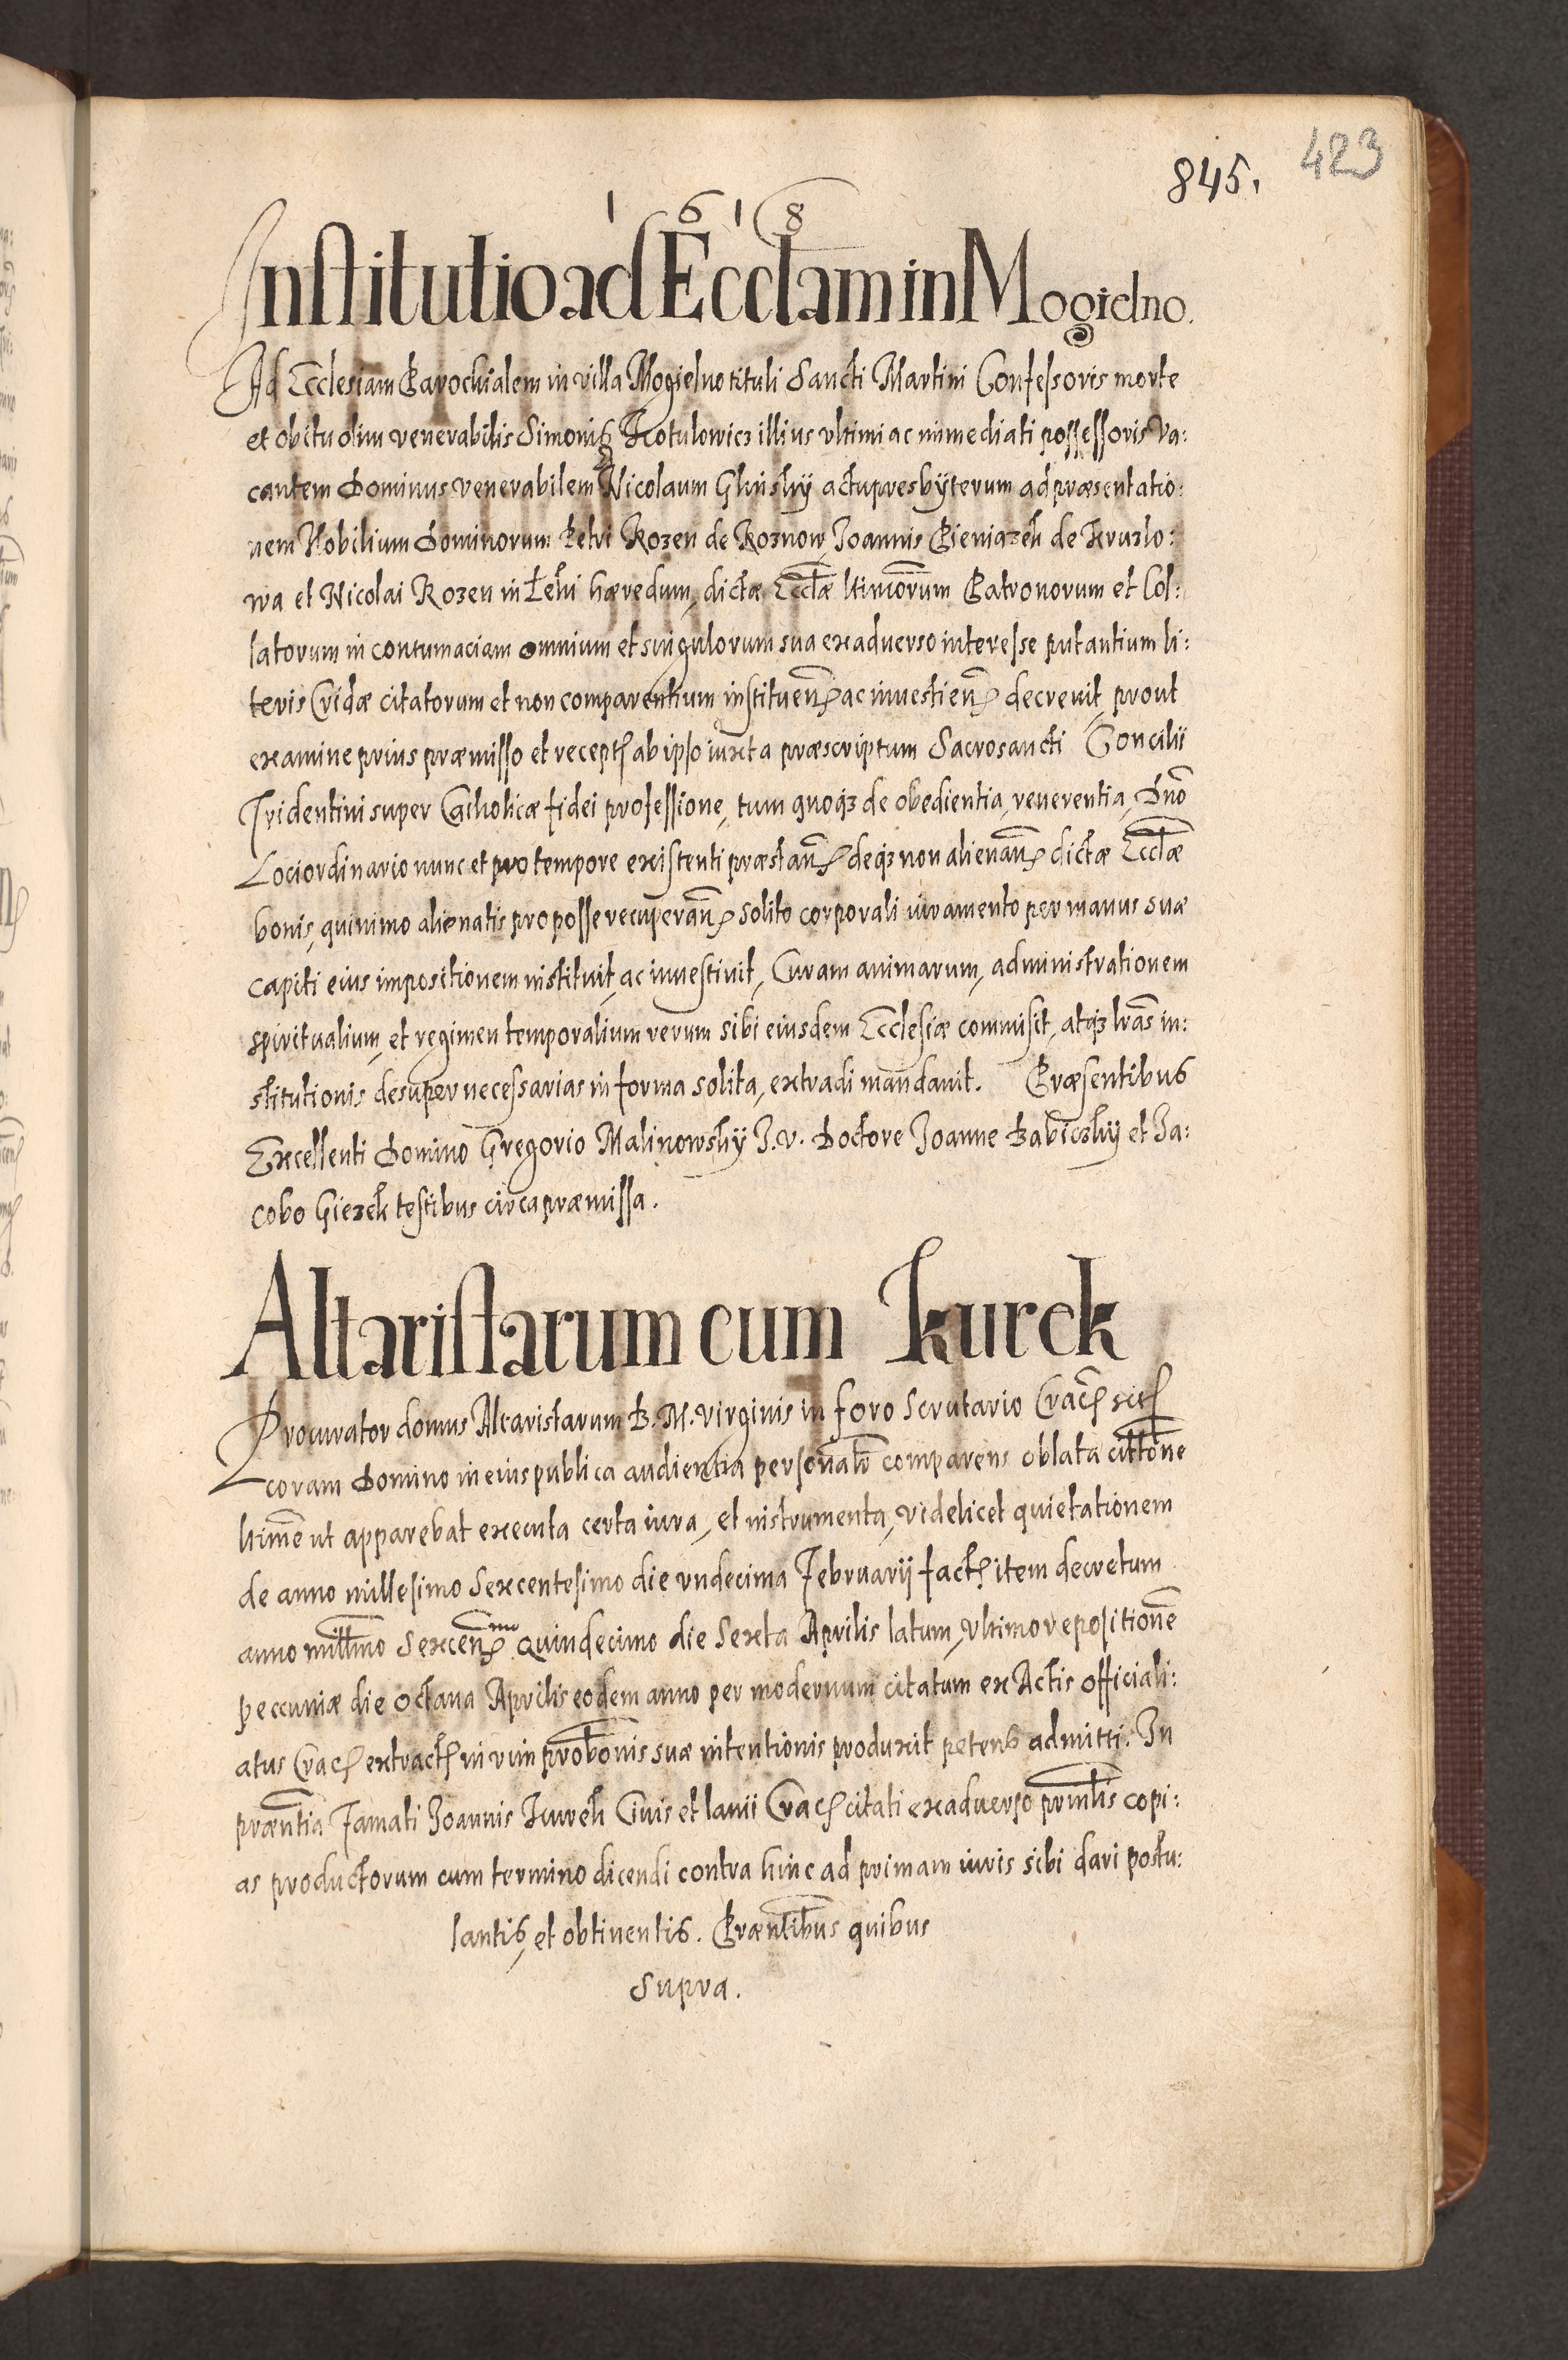 423
845.
1618
Institutio ad Ecclam in Mogielno.
Ad Ecclesiam Parochialem in villa Mogielno tituli Sancti Martini Confessoris morte
et obitu olim venerabilis Simonis Kotulowicz illius vltimi ac immediati possessoris va:
cantem Dominus venerabilem Nicolaum Glinsky actu presbyterum ad præsentatio:
nem Nobilium Dominorum Petri Rozen de Roznow, Joannis Pieniazek de Kruzlo:
wa et Nicolai Rozen in Łeki hæredum, dictæ Ecclæ ltimorum Patronorum et Col:
latorum in contumaciam omnium et singulorum sua ex aduerso interesse putantium li:
teris Cridæ citatorum et non comparentium instituen ac inuestien decreuit, prout
examine prius præmisso et recept ab ipso iuxta præscriptum Sacrosancti Concilii
Tridentini super Catholicæ fidei professione, tum quoqz de obedientia, reuerentia, Dno
Loci ordinario nunc et pro tempore existenti præstan deqz non alienan dictæ Ecclæ
bonis, quinimo alienatis pro posse recuperan solito corporali iuramento per manus suæ
capiti eius impositionem instituit, ac inuestiuit, Curam animarum, administrationem
spiritualium, et regimen temporalium rerum sibi eiusdem Ecclesiæ commisit, atqz lras in:
stitutionis desuper necessarias in forma solita, extradi mandauit. Præsentibus
Excellenti Domino Gregorio Malinowsky J. V. Doctore Joanne Babiczky et Ja:
cobo Giezek testibus circa præmissa.
Altaristarum cum Kurek
Procurator domus Altaristarum B. M. Virginis in foro Scrutario Crac sit
coram Domino in eius publica audientia personalr comparens oblata cittone
ltime ut apparebat executa certa iura, et instrumenta, videlicet quietationem
de anno millesimo Sexcentesimo die vndecima Februarij fact item decretum
anno millmo Sexcenmo quindecimo die Sexta Aprilis latum, vltimo repositione
peccuniæ die octaua Aprilis eodem anno per modernum citatum ex Actis officiali:
atus Crac extract in vim probonis suæ intentionis produxit petens admitti. In
præntia Famati Joannis Kurek Ciuis et lanii Crac citati ex aduerso prinlis copi:
as productorum cum termino dicendi contra hinc ad primam iuris sibi dari postu:
lantis, et obtinentis. Præntibus quibus
supra.